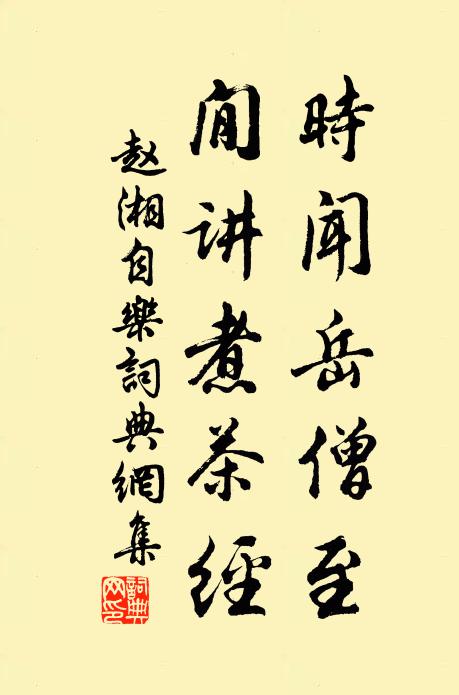 時聞岳僧至
閒讲煮茶經
赵湘自樂詞典網集
詞典网印